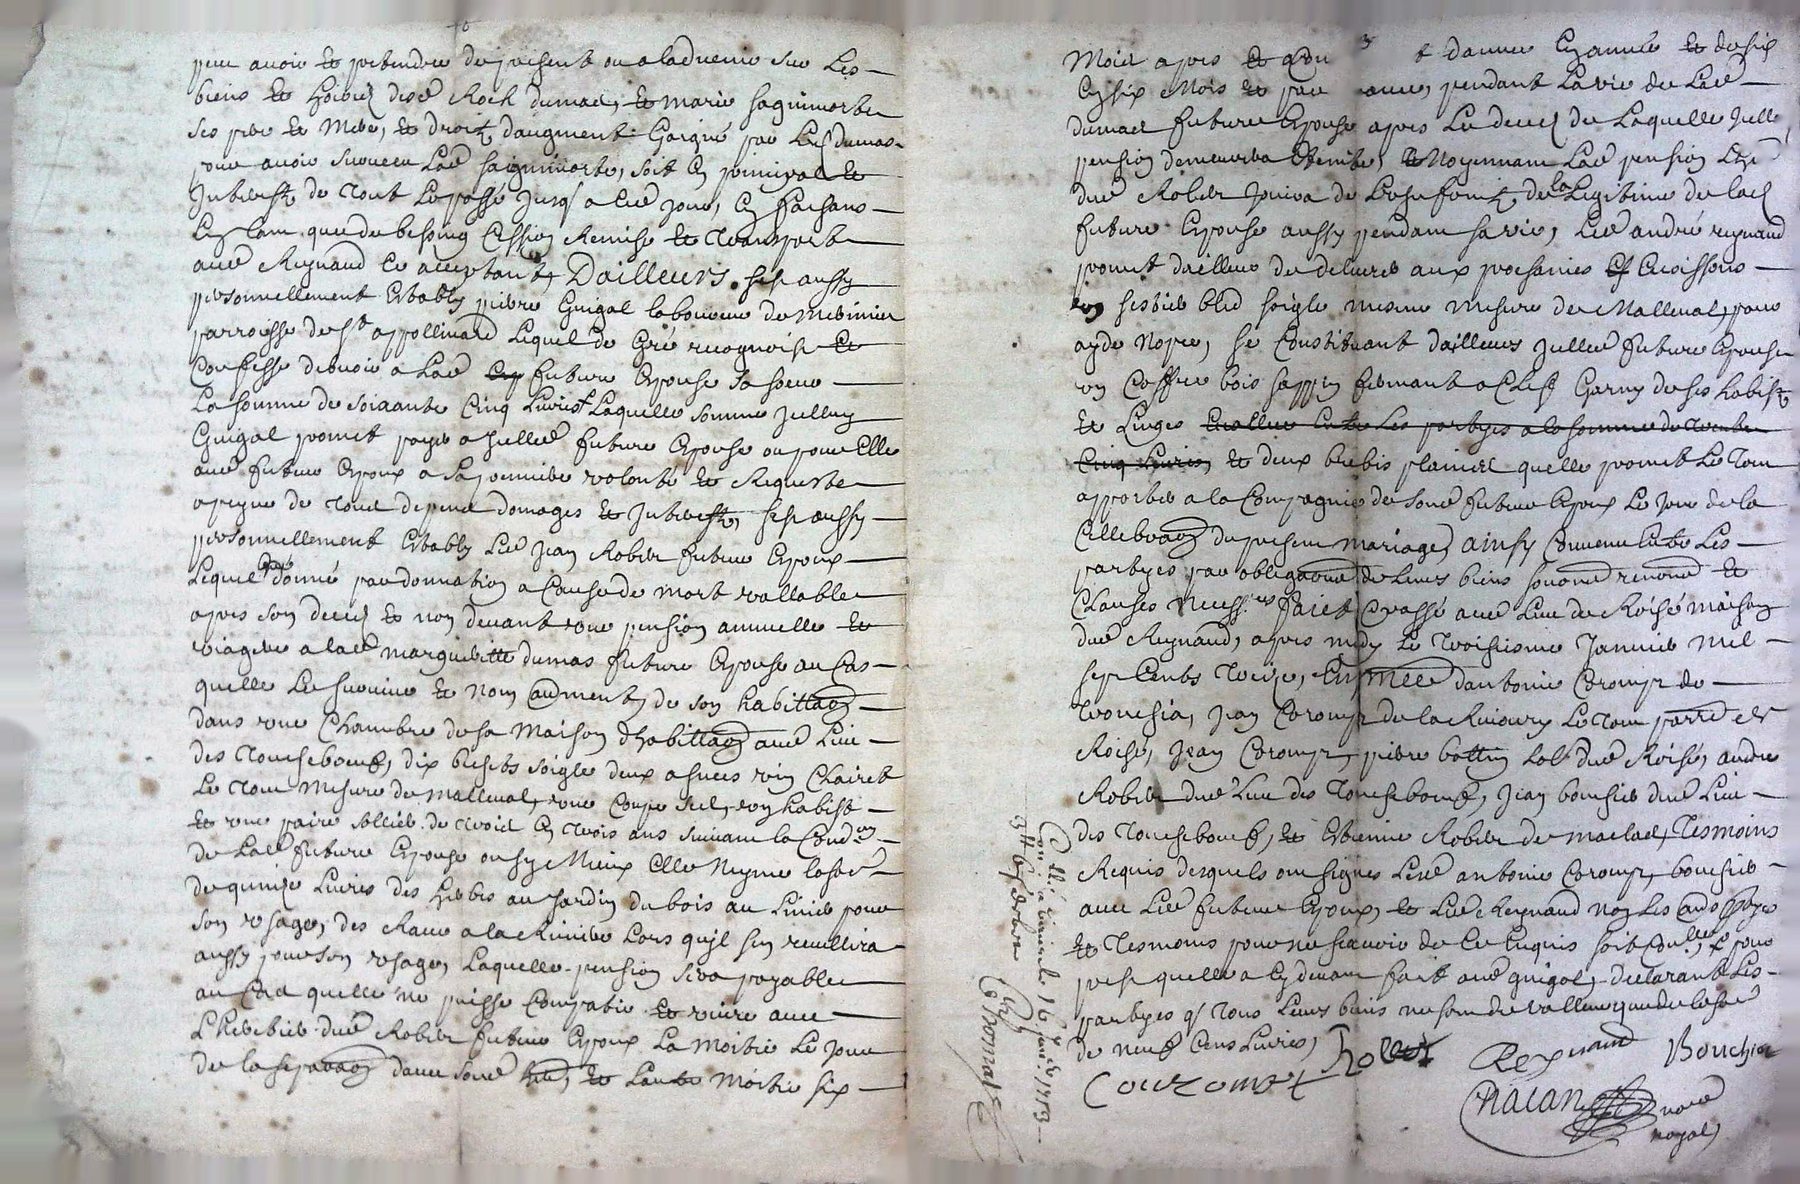 peut avoir et pretendre du present ou a ladvenir sur les
biens et hoiries desd Roch dumas, et marie saignimorte
ses pere et mere, et droit daugment gaigné par led dumas
pour avoir survecu lad saignimorte, soit en principal et
Interestz de tout le passé jusq a ce jour, en faisant
en tant que de besoing cession remise et transport
aud Reynaud ce acceptant, Dailleurs sest aussy
personnellement estably pierre Guigal laboureur de
parroisse de St appollinard lequel de gré recognoist et
confesse debvoir a lad future Espouse sa soeur
la somme de soixante cinq livres laquelle somme Icelluy
Guigal promet payer a Icelle future Espouse ou pour Elle
aud futur Espoux a sa premiere volonté et Requeste
a peyne de tous depens domages et Interestz, sest aussy
personnellement estably led Jean Robert futur Espoux
lequel a donné par donnation a cause de mort vallable
apres son deced et non devant une pension annuelle et
viagere a lad margueritte dumas future Espouse au cas
quelle le survive et non aultrement, de son habittaon
dans une chambre de sa maison dhabittaon aud lieu
des Tourtebouef, dix bichets soigle deux asnees vin clairet
le tout mesure de malleval, une coupe sel, un habist
et une paire solliers de trois en trois ans suivant la condon
de lad future Espouse ou sy mieux elle Neyme la so
de quinze livres des herbes au Jardin du bois au
son usage, des Raves a la Raviere lors quil sen recuillira
aussy pour son usage, laquelle pension sera payable
au cas quelle ne puisse compatir et vivre avec
Lheritier dud Robert futur Espoux la moitié le jour
de la separaon davec sond et lautre moitié six
Mois apres et danné En année et de six
En six Mois et par pendant la vie de lad
dumas future Espouse apres le deced de laquelle Icelle
pension demeurera Esteinte, et Moyennant lad pension led
dud Robert jouira de lusufruit de la Legitime de lad
future Espouse aussy pendant sa vie, led andré reynaud
promet dailleurs de delivrer aux prochaines Recoissons
un sestier bled soigle mesme mesure de Malleval, pour
ayde Nopce, se constituant dailleurs Icelle future Espouse
un Coffre bois sappin fermant a clef Garny de ses habistz
et Linges evallué entre les partyes a la somme de trente
cinq livres, et deux brebis plaines quelle promet le tout
apporter a la Compagnie de sond futur Espoux le jour de la
Cellebraon du present mariage, ainsy convenu entre les
partyes par obligaon de leurs biens soumon renon et
Clauses necessres faict et passé aud lieu de Roisé maison
dud Reynaud, apres midy le troisiesme Janvier mil
sept cents treize, En pnce dantoine Corompt de
Jean Corompt de la le tout parre de
Roisey, Jean Corompt, pierre bottin labr dud Roisé, andre
Robert dud lieu des Tourtebouef, Jean bouchier dud lieu
des Tourtebouef, et Estienne Robert de maclas, Tesmoins
Requis desquels ont signes lesd antoine Corompt, bouchier
avec led futur Espoux, et led Reynaud non les aues ptyes
et tesmoins pour ne scavoir de ce Enquis soit con
quelle a cy devant fait aud guigal, declarant les
partyes q tous leurs biens ne sont de valleur que de la so
de neuf cens livres,
Robert
Reynaud
Bouchier
Courompt
Chacan
nore
royal
16 janr 1713